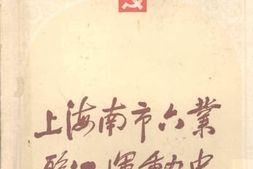 上海南市六業
運動史